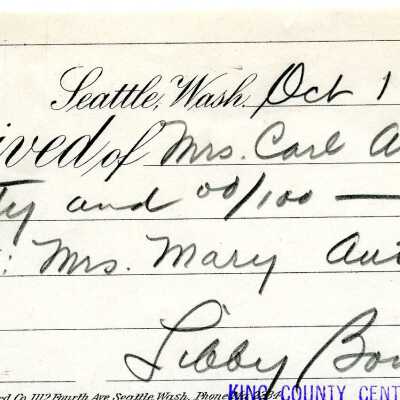 Seattle, Wash. Oct 1
ived of Mrs. Carl A
ty and 00/100 —
: Mrs. Mary
Libby
ed Co. 1112 Fourth Ave Seattle, Wash. Phone
KING COUNTY CENT